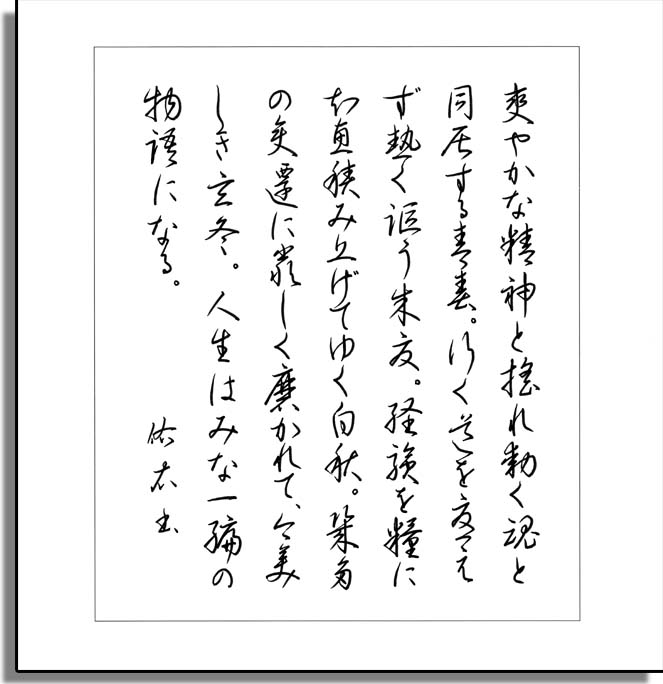 爽やかな精神と揺れ動く魂と
同居する青春。行く道を え
ず熱く謳う朱夏。経験を糧に
知恵積み上げてゆく白秋。幾多
の変遷に厳しく磨かれて、今美
しき玄冬。人生はみな一編の
物語になる。